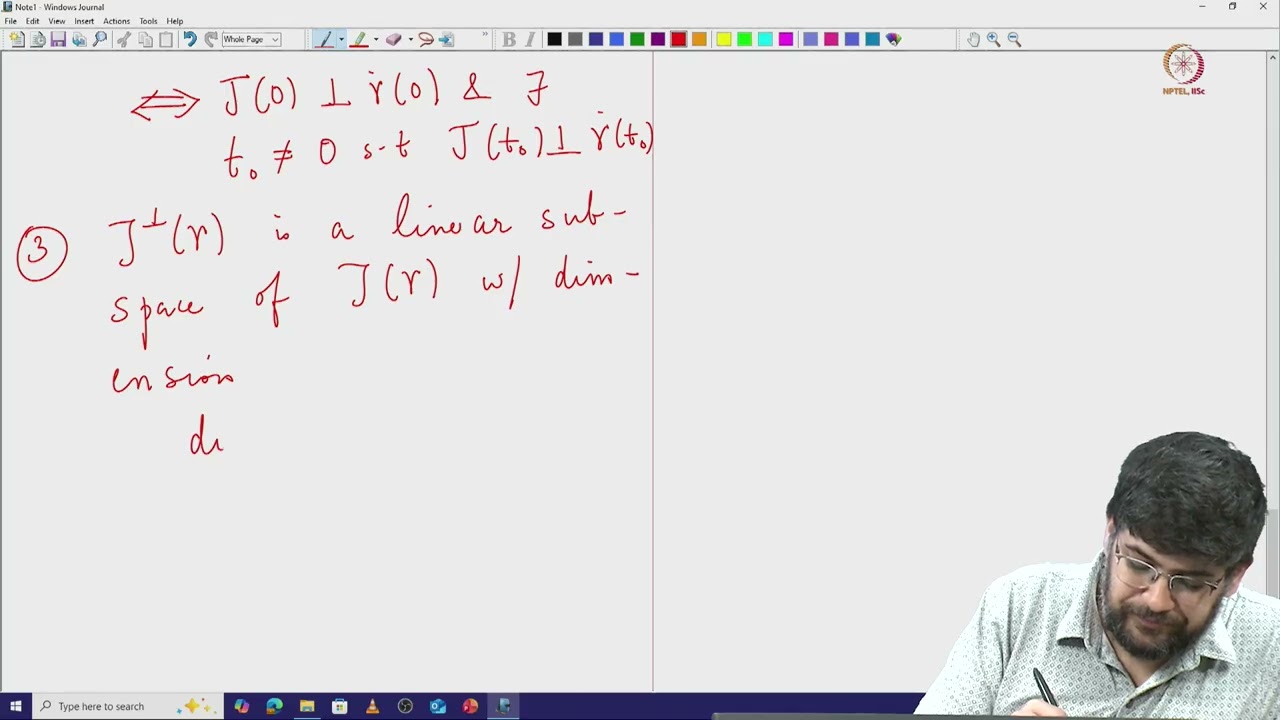 Note1 - Windows Journal
File Edit View Insert Actions Tools Help
Whole Page
B I
NPTEL, IISc
⟺ J(0) ⊥ γ̇(0) & ∃
t₀ ≠ 0 s.t J(t₀) ⊥ γ̇(t₀)
③ J^⊥(γ) is a linear sub-
space of J(γ) w/ dim-
ension
di
Type here to search